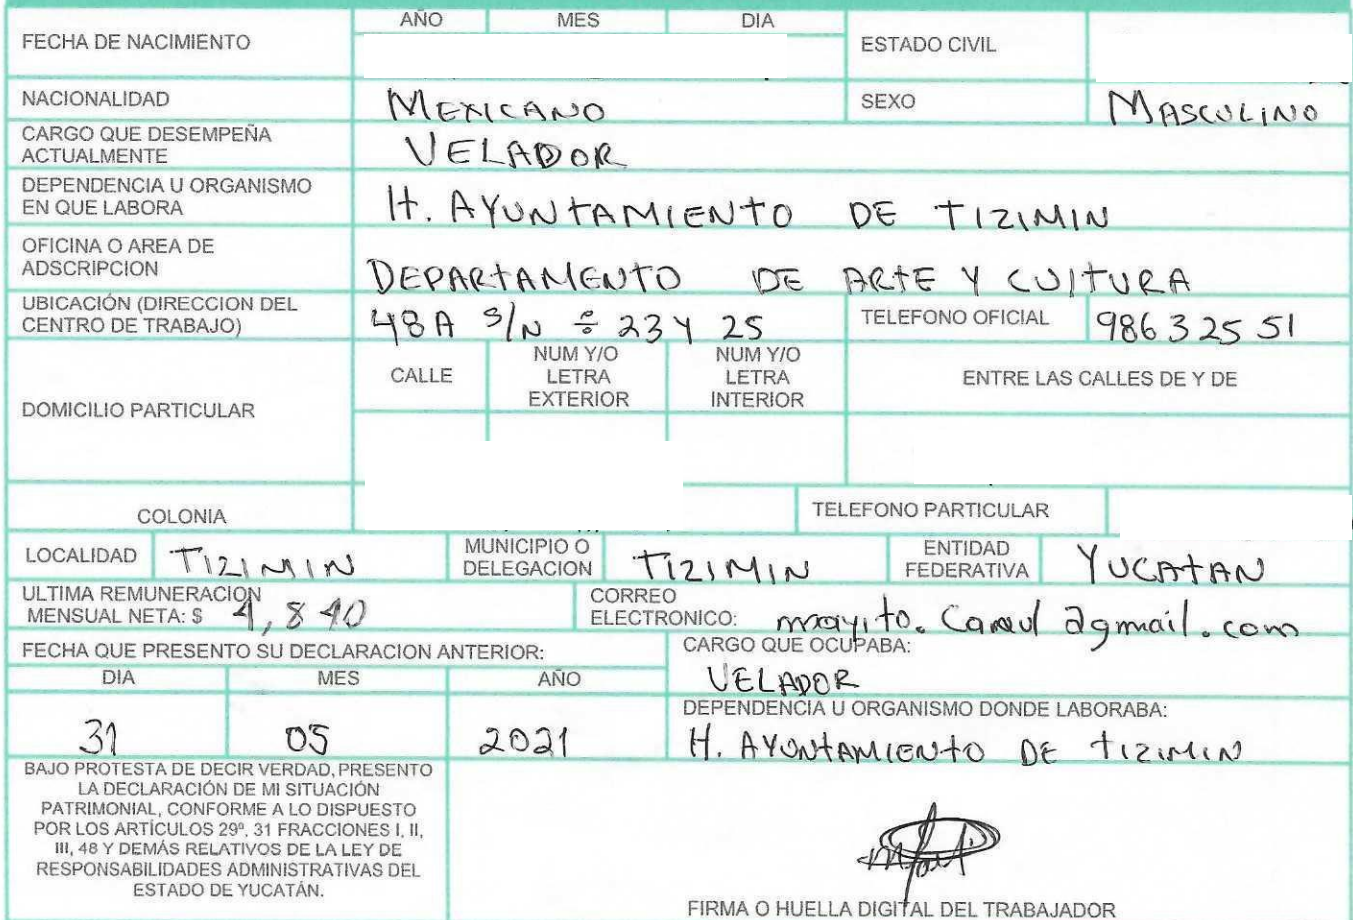 AÑO MES DIA
FECHA DE NACIMIENTO ESTADO CIVIL
NACIONALIDAD MEXICANO SEXO MASCULINO
CARGO QUE DESEMPEÑA
ACTUALMENTE VELADOR
DEPENDENCIA U ORGANISMO
EN QUE LABORA H. AYUNTAMIENTO DE TIZIMIN
OFICINA O AREA DE
ADSCRIPCION DEPARTAMENTO DE ARTE Y CULTURA
UBICACIÓN (DIRECCION DEL
CENTRO DE TRABAJO) 48A S/N ÷ 23 Y 25 TELEFONO OFICIAL 986 3 25 51
DOMICILIO PARTICULAR
CALLE
NUM Y/O
LETRA
EXTERIOR
NUM Y/O
LETRA
INTERIOR
ENTRE LAS CALLES DE Y DE
COLONIA TELEFONO PARTICULAR
LOCALIDAD TIZIMIN
MUNICIPIO O
DELEGACION TIZIMIN
ENTIDAD
FEDERATIVA YUCATAN
ULTIMA REMUNERACION
MENSUAL NETA: $ 4,840
CORREO
ELECTRONICO: mayito. @gmail.com
FECHA QUE PRESENTO SU DECLARACION ANTERIOR:
DIA MES AÑO
31 05 2021
CARGO QUE OCUPABA:
VELADOR
DEPENDENCIA U ORGANISMO DONDE LABORABA:
H. AYUNTAMIENTO DE TIZIMIN
BAJO PROTESTA DE DECIR VERDAD, PRESENTO
LA DECLARACIÓN DE MI SITUACIÓN
PATRIMONIAL, CONFORME A LO DISPUESTO
POR LOS ARTÍCULOS 29º, 31 FRACCIONES I, II,
III, 48 Y DEMÁS RELATIVOS DE LA LEY DE
RESPONSABILIDADES ADMINISTRATIVAS DEL
ESTADO DE YUCATÁN.
FIRMA O HUELLA DIGITAL DEL TRABAJADOR